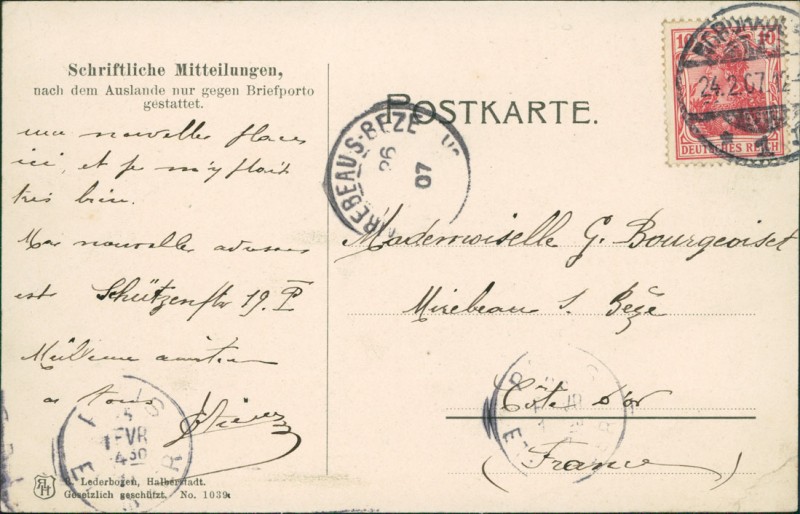 Schriftliche Mitteilungen,
nach dem Auslande nur gegen Briefporto
gestattet.
POSTKARTE.
10 10
DEUTSCHES REICH
24.2.07.12-
REBEAU-S-BEZE
26
07
ma nouvelle place
ici, et je m'y plait
très bien.
Ma nouvelle adresse
est Schützenstr 19. I
amitiés
à tous
Mademoiselle G. Bourgeoiset
Mirebeau s. Bèze
Côte d'or
(France)
FVR
430
Lederbogen, Halberstadt.
Gesetzlich geschützt. No. 1039.